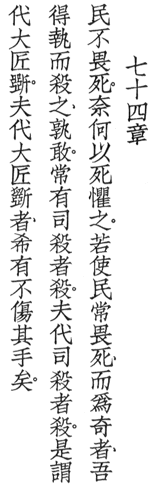 七十四章
民不畏死。奈何以死懼之。若使民常畏死、而為奇者、吾
得執而殺之、孰敢。常有司殺者殺。夫代司殺者殺。是謂
代大匠斲。夫代大匠斲者、希有不傷其手矣。